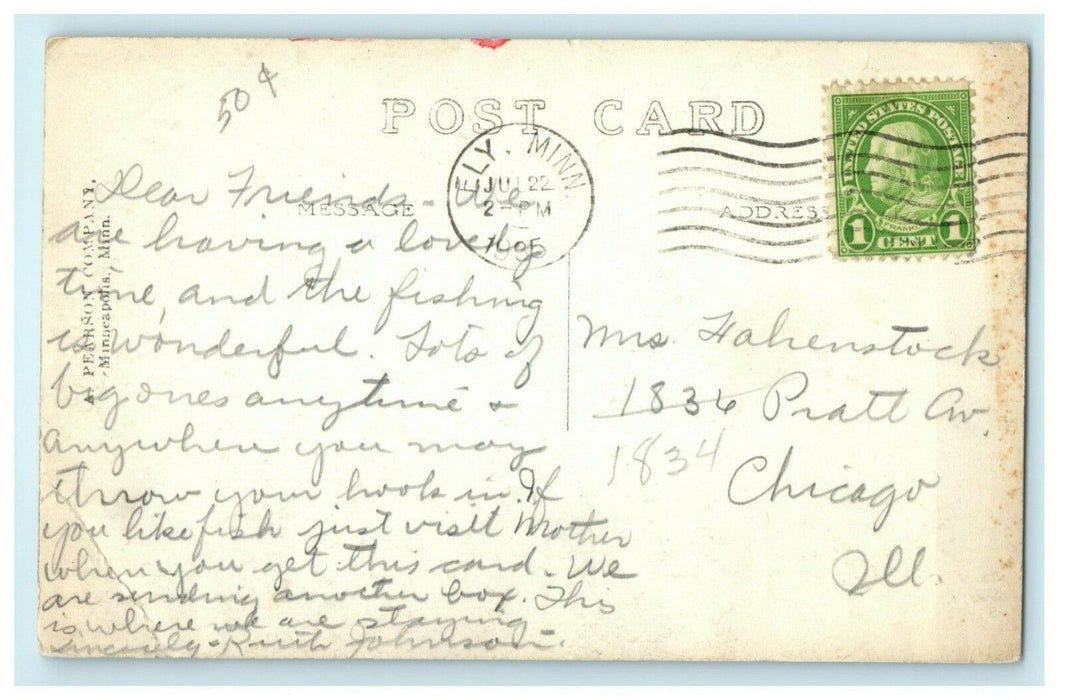 50¢
POST CARD
ELY, MINN
JUL 22
2-PM
1935
MESSAGE
ADDRESS
UNITED STATES POSTAGE
FRANKLIN
1 CENT 1
A. PEARSON COMPANY,
Minneapolis, Minn.
Dear Friends - We
are having a lovely
time, and the fishing
is wonderful. Lots of
big ones anytime &
anywhere you may
throw your hook in. If
you like fish just visit Mother
when you get this card. We
are sending another box. This
is where we are staying
Sincerely - Ruth Johnson.
Mrs. Fahenstock
1836 Pratt Av.
1834
Chicago
Ill.